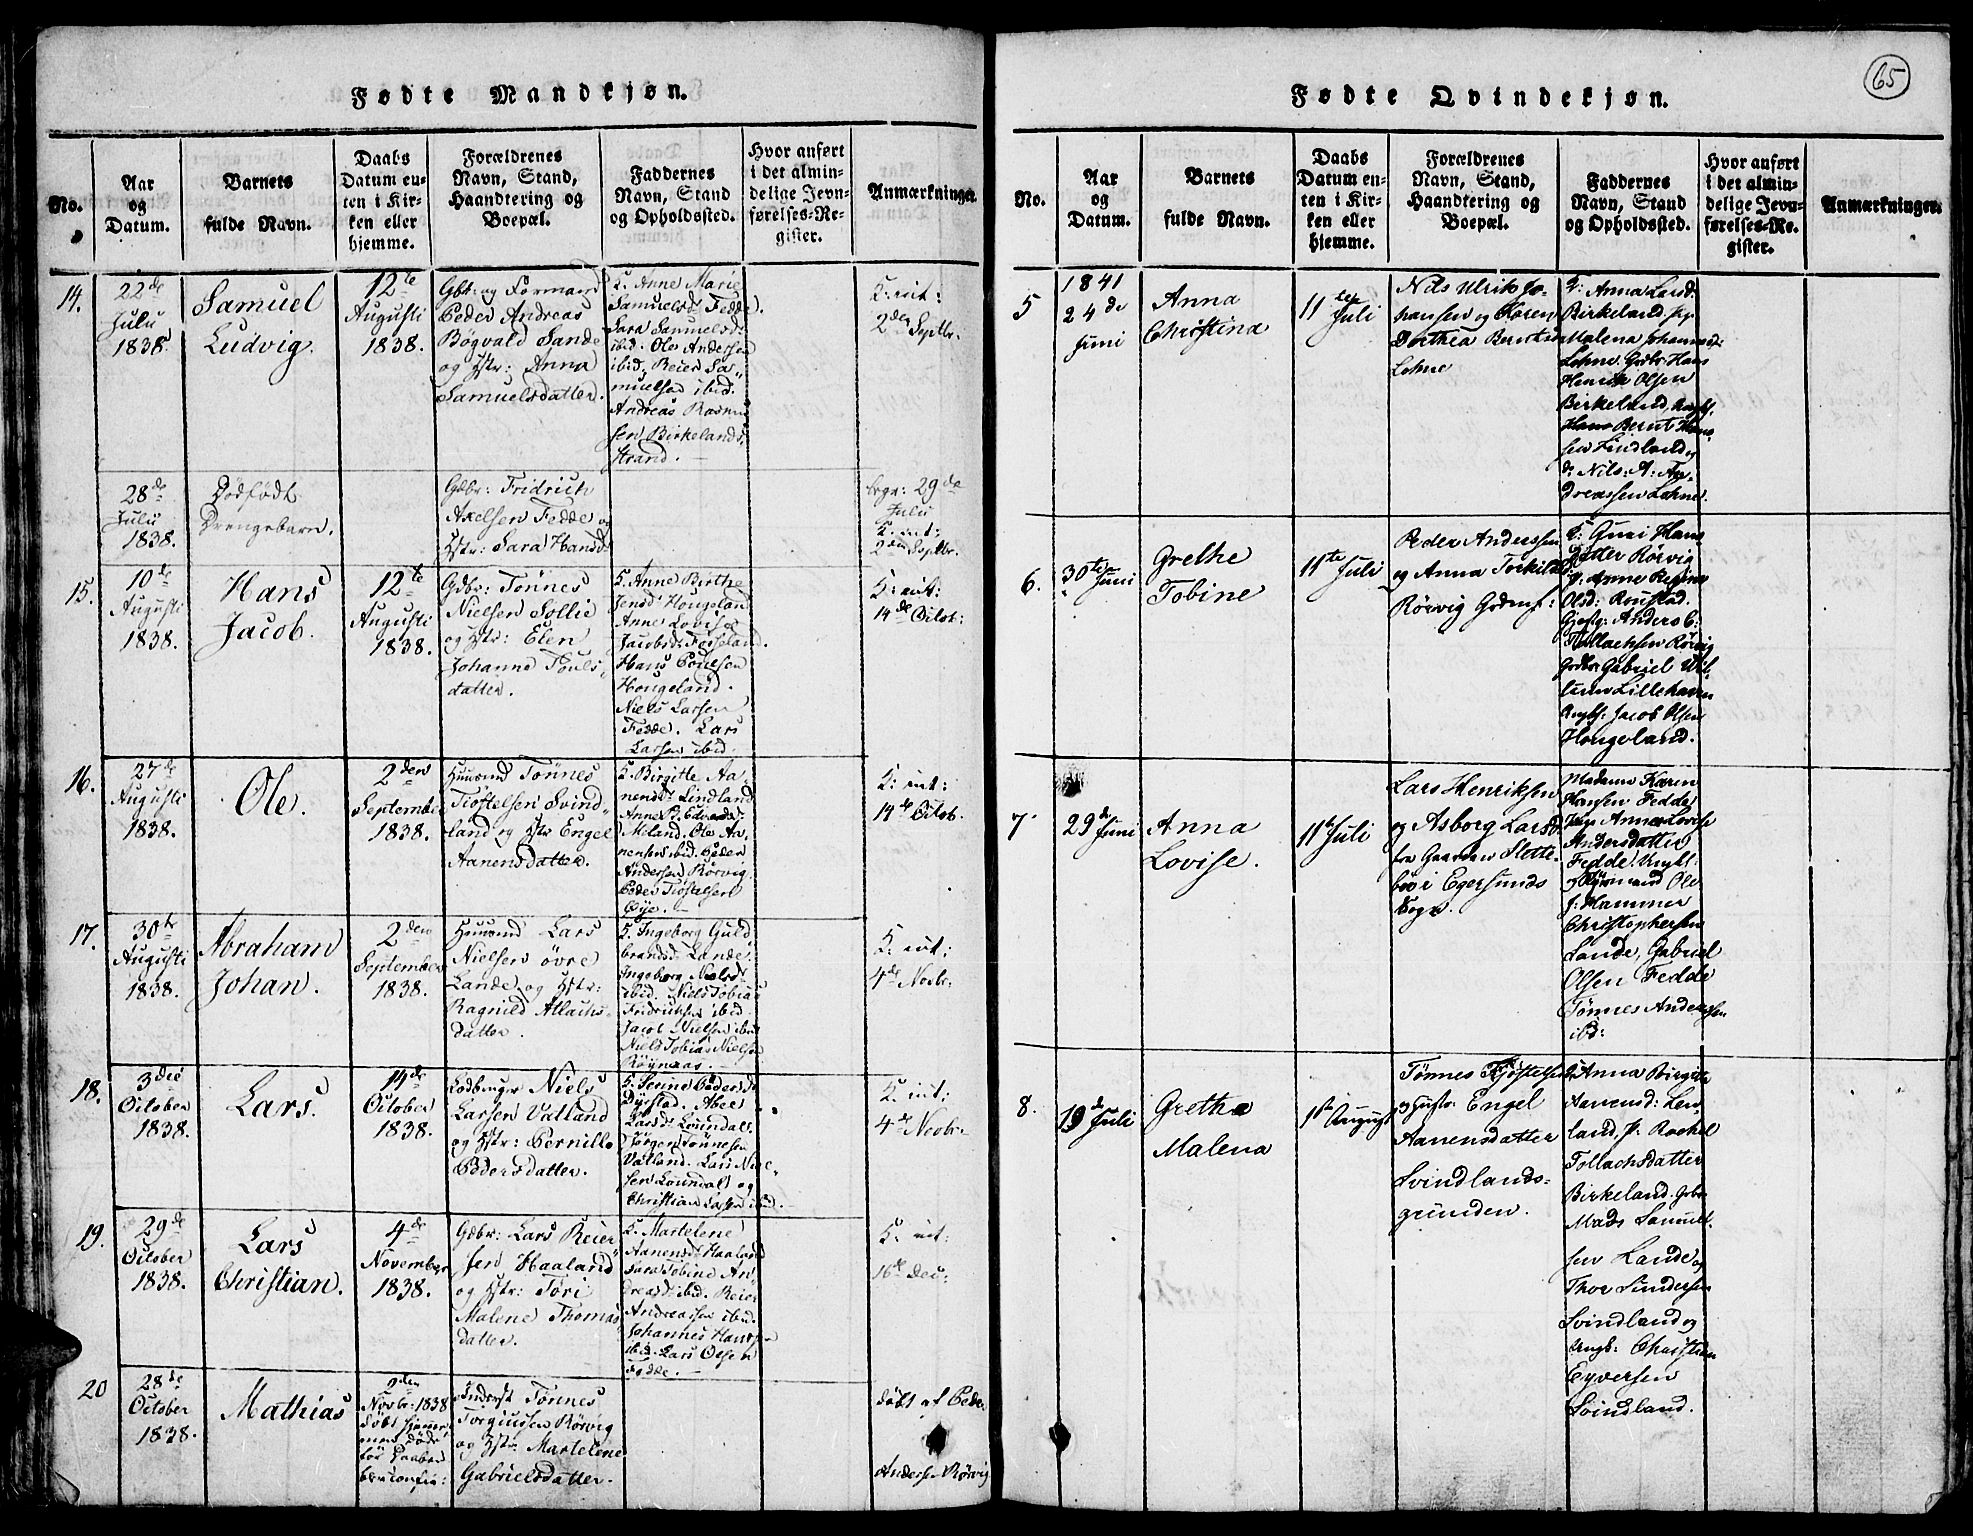 Fødte Mandkjøn.
No.
Aar
og
Datum.
Barnets
fulde Navn.
Daabs
Datum en-
ten i Kir-
ken eller
hjemme.
Forældrenes
Navn, Stand,
Haandtering og
Boepæl.
Faddernes
Navn, Stand
og Opholdssted.
Hvor anført
i det almin-
delige Jevn-
førelses-Re-
gister.
Anmærkninger.
14.
22de
Julii
1838.
Samuel
Ludvig.
12te
Augusti
1838.
Gbr: og Formand
Peder Andreas
Bøgvald Sande
og Hstr: Anna
Samuelsdatter.
F. Anne Marie
Samuelsd: Fedde.
Sara Samuelsd:
ibid. Ole Andersen
ibid. Reier Sa-
muelsen ibid.
Andreas Rasmus
sen Birkelands
strand.
K: int:
2den Septbr.
28de
Julii
1838.
Dødfødt
Drengebarn.
Gdbr: Fridrich
Axelsen Fedde og
Hstr: Sara Hansd:
begr: 29de
Julii
K: int:
2den Septbr.
15.
10de
Augusti
1838.
Hans
Jacob.
12te
Augusti
1838.
Gdbr: Tønnes
Nielsen Sollie
og Hstr: Elen
Johanne Pouls-
datter.
F. Anne Birthe
Jensd: Hougeland
Anne Lovise
Jacobsd: Fosseland.
Hans Poulsen
Hougeland.
Niels Larsen
Fedde. Lars
Larsen ibid.
K: int:
14de Octobr:
16.
27de
Augusti
1838.
Ole.
2den
September
1838.
Huusmd Tønnes
Tiøstelsen Svind-
land og Hstr Engel
Aanensdatter.
F. Birgitte Aa-
nensd: Lindland
Anne P. Edvardsd:
Meland. Ole Aa-
nensen ibid. Peder
Andersen Rørvig
Peder Tiøstelsen
Øye.
K: int:
14de Octob.
17.
30te
Augusti
1838.
Abraham
Johan.
2den
September
1838.
Huusmd Lars
Nielsen øvre
Lande og Hstr:
Ragnild Atlachs-
datter.
F. Ingeborg Guld-
brandsd: Lande.
Ingeborg Nielsd:
ibid. Niels Tobias
Fridrichsen ibid.
Jacob Nielsen ibid
Niels Tobias Nielsen
Røynaas.
K: int:
4de Novbr:
18.
3die
October
1838.
Lars.
14de
October
1838.
Niels
Larsen Vatland
og Hstr: Pernille
Pedersdatter.
F. Serine Pedersd:
Dyrstad. Abel
Larsd: Loundal.
Jørgen Tønnesen
Vatland. Lars Niel-
sen Loundal og
Christian Larsen ibid.
K: int:
4de Novbr:
19.
29de
October
1838.
Lars
Christian.
4de
November
1838.
Gdbr: Lars Reier
sen Haaland
og Hstr: Tori
Malene Thomas-
datter.
F. Martelene
Aanensd: Haaland
Sara Tobine An-
dreasd: ibid. Reier
Andreassen ibid.
Johannes Hansen
ibid. Lars Olsen
Fedde.
K: int:
16de Dec:
20
28de
October
1838.
Mathias
9den
Novbr: 1838
Døbt hjemme,
men døde
før Daaben
blev confir:
Inderst Tønnes
Torgiussen Rørvig
og Hstr: Martelene
Gabrielsdatter.
døbt af Peder
Andersen Rørvig
65
Fødte Qvindekjøn.
No.
Aar
og
Datum.
Barnets
fulde Navn.
Daabs
Datum en-
ten i Kir-
ken eller
hjemme.
Forældrenes
Navn, Stand,
Haandtering og
Boepæl.
Faddernes
Navn, Stand
og Opholdssted.
Hvor anført
i det almin-
delige Jevn-
førelses-Re-
gister.
Anmærkninger.
5
1841
24de
Juni
Anna
Christina
11te Juli
Nils Ulrik Jo-
hansen og Karen
Dorthea Berntsd:
Lohne
F: Anna Larsd:
Birkeland. pig
Malena Johannesd:
Lohne. Gdbr: Hans
Henrik Olsen
Birkeland. Ungk:
Hans Bernt Han-
sen Lindland og
d: Nils: A: An-
dreassen Lohne.
6.
30te Juni
Grethe
Tobine
11te Juli
Peder Anderssen
og Anna Torkildsd:
Rørvig Grdmf:
F: Guri Hans-
datter Rørvig
p. Anne Regine
Olsd: Roustad.
Anders C:
Tollachsen Rørvig
Grdbr Gabriel
Lillehavn
Ungk: Jacob Olsen
Hougeland.
7
29de Juni
Anna
Lovise.
11te Juli
Lars Henriksen
og Asborg Larsd:
fra Gaarden Slette-
bø i Egersunds
Sogn.
Madame Karen
Hansen Fedde
Pige Anna Lovise
Andersdatter
Fedde. Ungk:
og Styrmand Ole
J: Hammer
Christophersen
Lande, Gabriel
Olsen Fedde
Tønnes Anderssen
ibd:
8.
19de Juli
Gretha
Malena
1ste August
Tønnes Tjøstelsen
og Hustr: Engel
Aanensdatter
Svindlands-
grunden.
F: Anna Birgitte
Aanensd: Len-
land, P: Rachel
Tollachsdatter
Birkeland. Grbr:
Mads Samuel-
sen Lande og
Thor Sundersen
Svindland og
Ungk: Christian
Eyversen
Svindland.